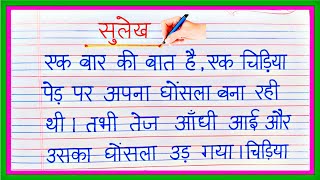 सुलेख
एक बार की बात है, एक चिड़िया
पेड़ पर अपना घोंसला बना रही
थी। तभी तेज आँधी आई और
उसका घोंसला उड़ गया। चिड़िया